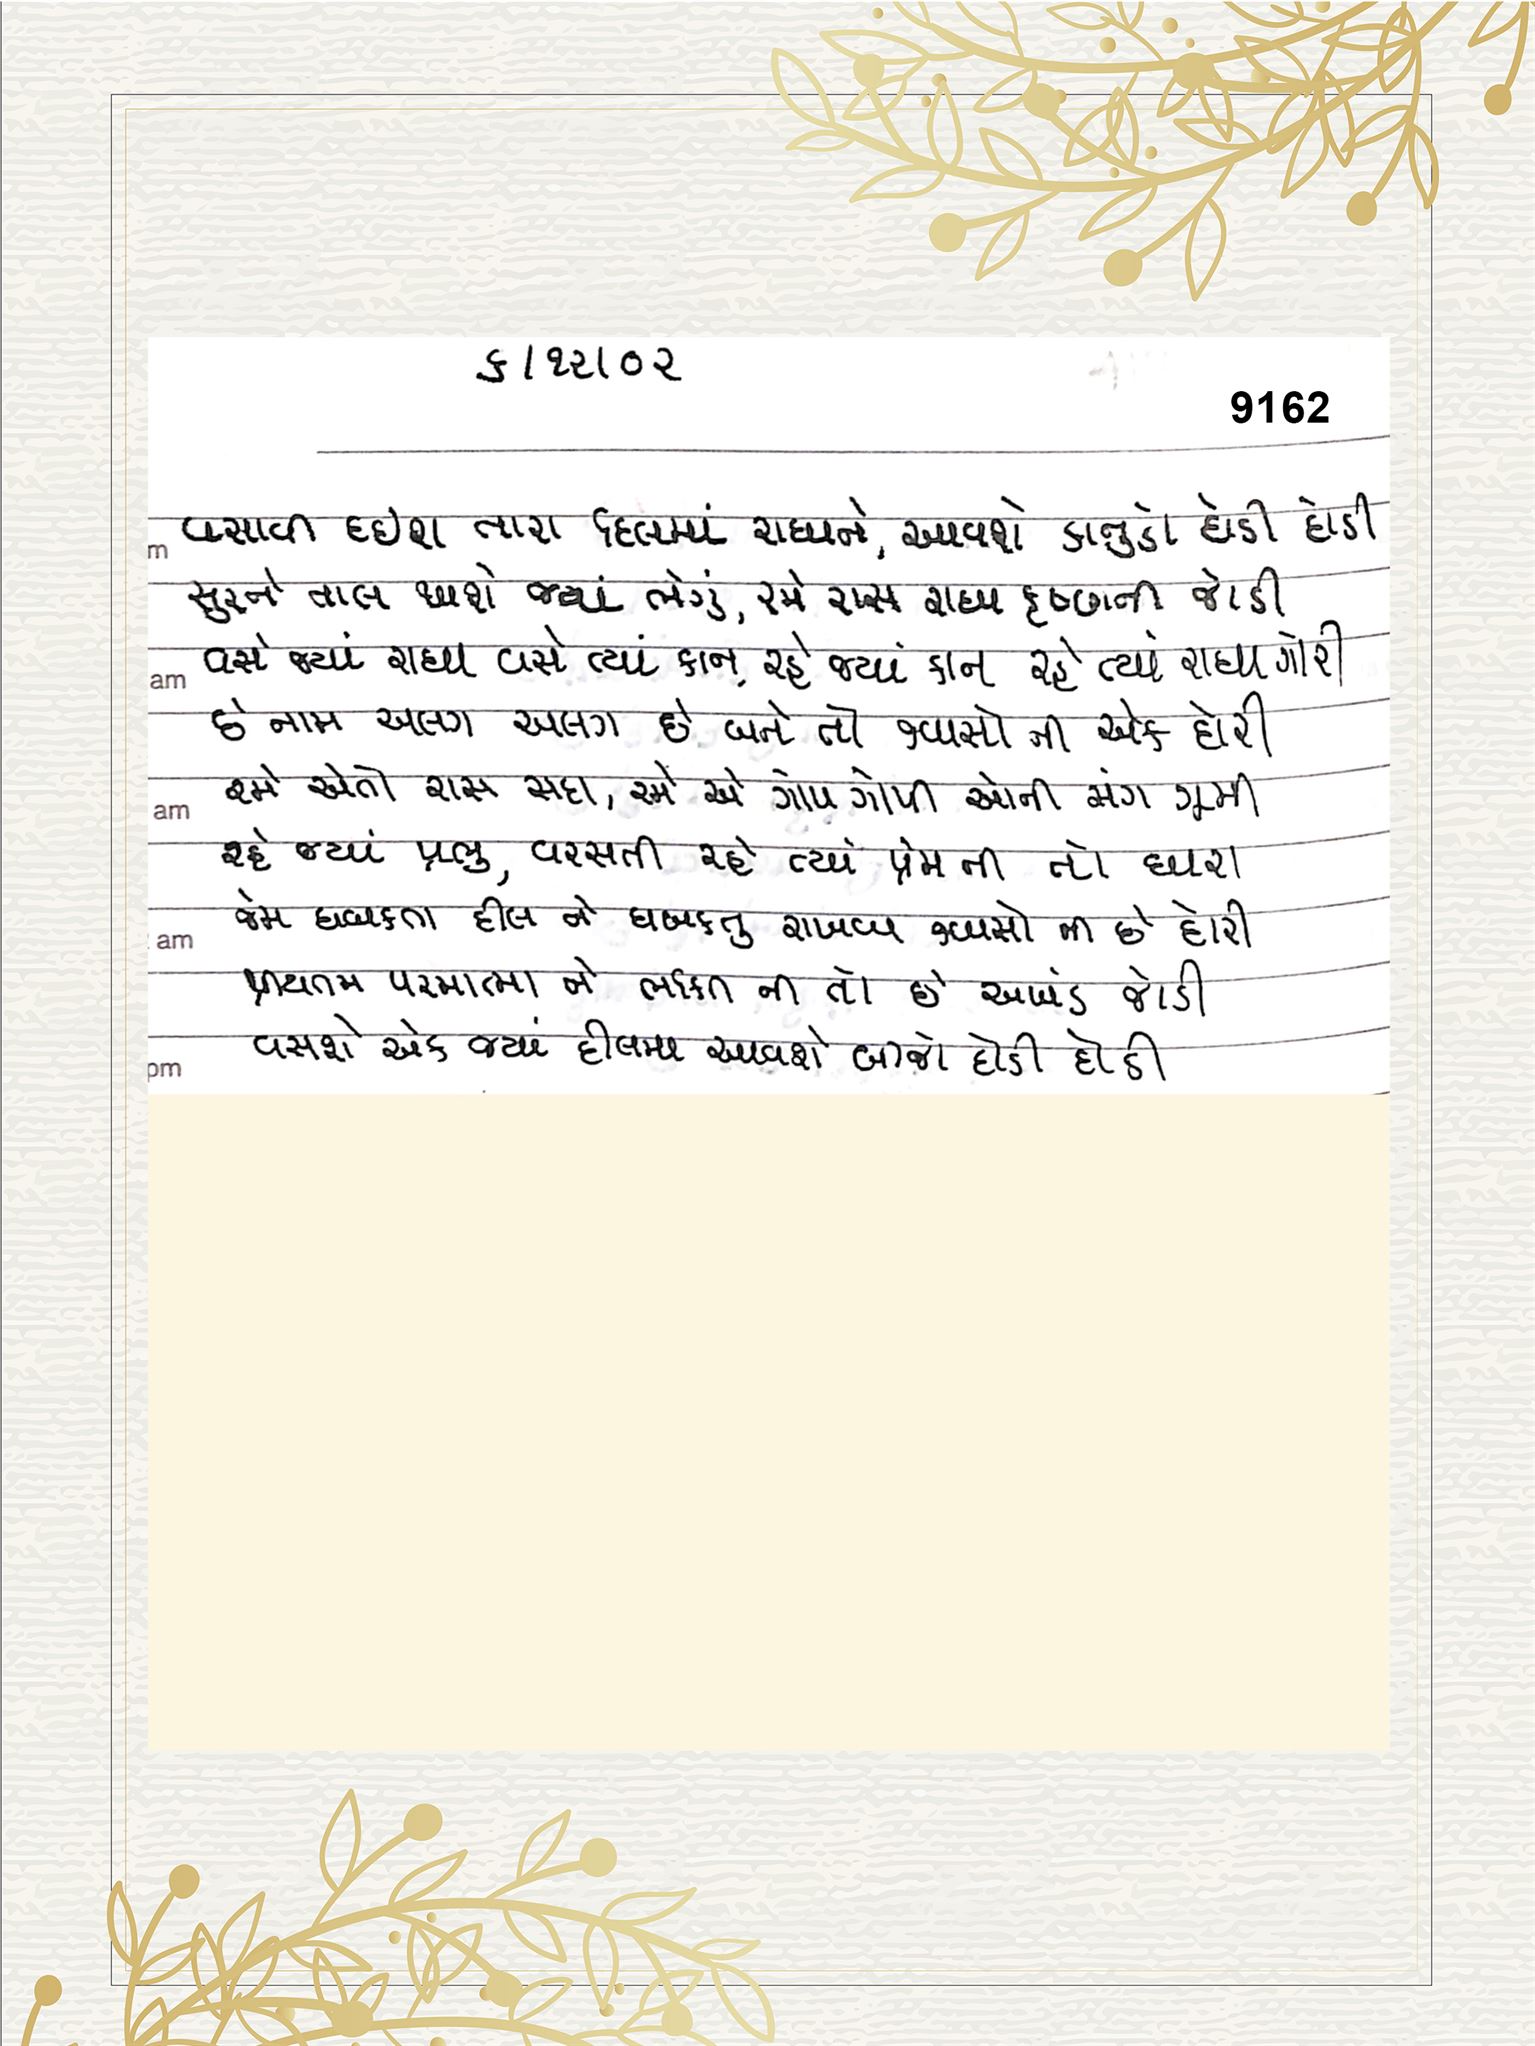 ૬/૧૨/૦૨
9162
વસાવી દઈશ તારા દિલમાં રાધાને, આવશે કાનુડો દોડી દોડી
m
સુરને તાલ થાશે જ્યાં ભેગું, રમે રાસ રાધા કૃષ્ણની જોડી
વસે જ્યાં રાધા વસે ત્યાં કાન, રહે જ્યાં કાન રહે ત્યાં રાધા ગોરી
am
છે નામ અલગ અલગ છે બને તો શ્વાસો ની એક દોરી
રમે એતો રાસ સદા, રમે એ ગોપ ગોપી ઓની સંગ ઝૂમી
am
રહે જ્યાં પ્રભુ, વરસતી રહે ત્યાં પ્રેમ ની તો ધારા
જેમ ધબકતા દીલ ને ધબકતુ રાખવા શ્વાસો ની છે દોરી
am
પ્રીયતમ પરમાત્મા ને ભક્તિ ની તો છે અખંડ જોડી
વસશે એક જ્યાં દીલમા આવશે બીજો દોડી દોડી
pm